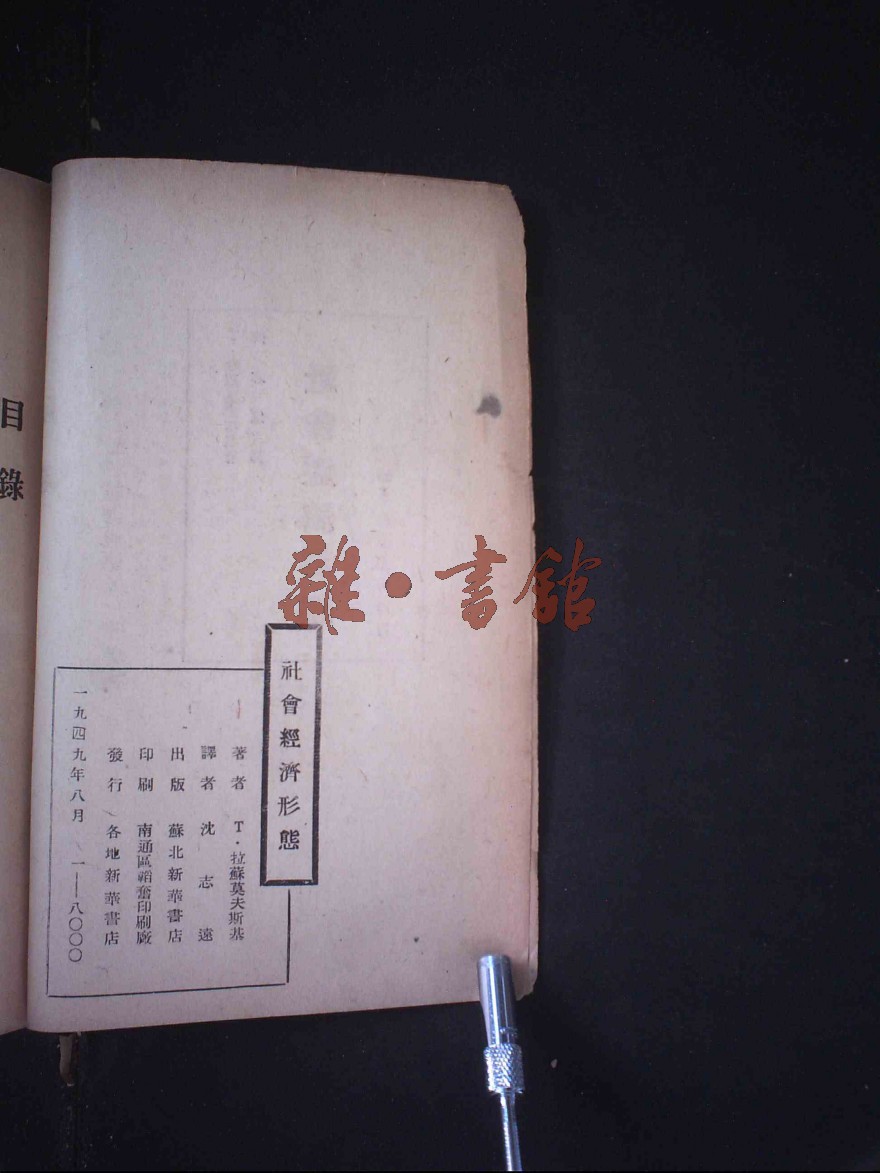 社會經濟形態
著者 T·拉蘇莫夫斯基
譯者 沈志遠
出版 蘇北新華書店
印刷 南通區韜奮印刷廠
發行 各地新華書店
一九四九年八月 一—八〇〇〇
目錄
雜·書館